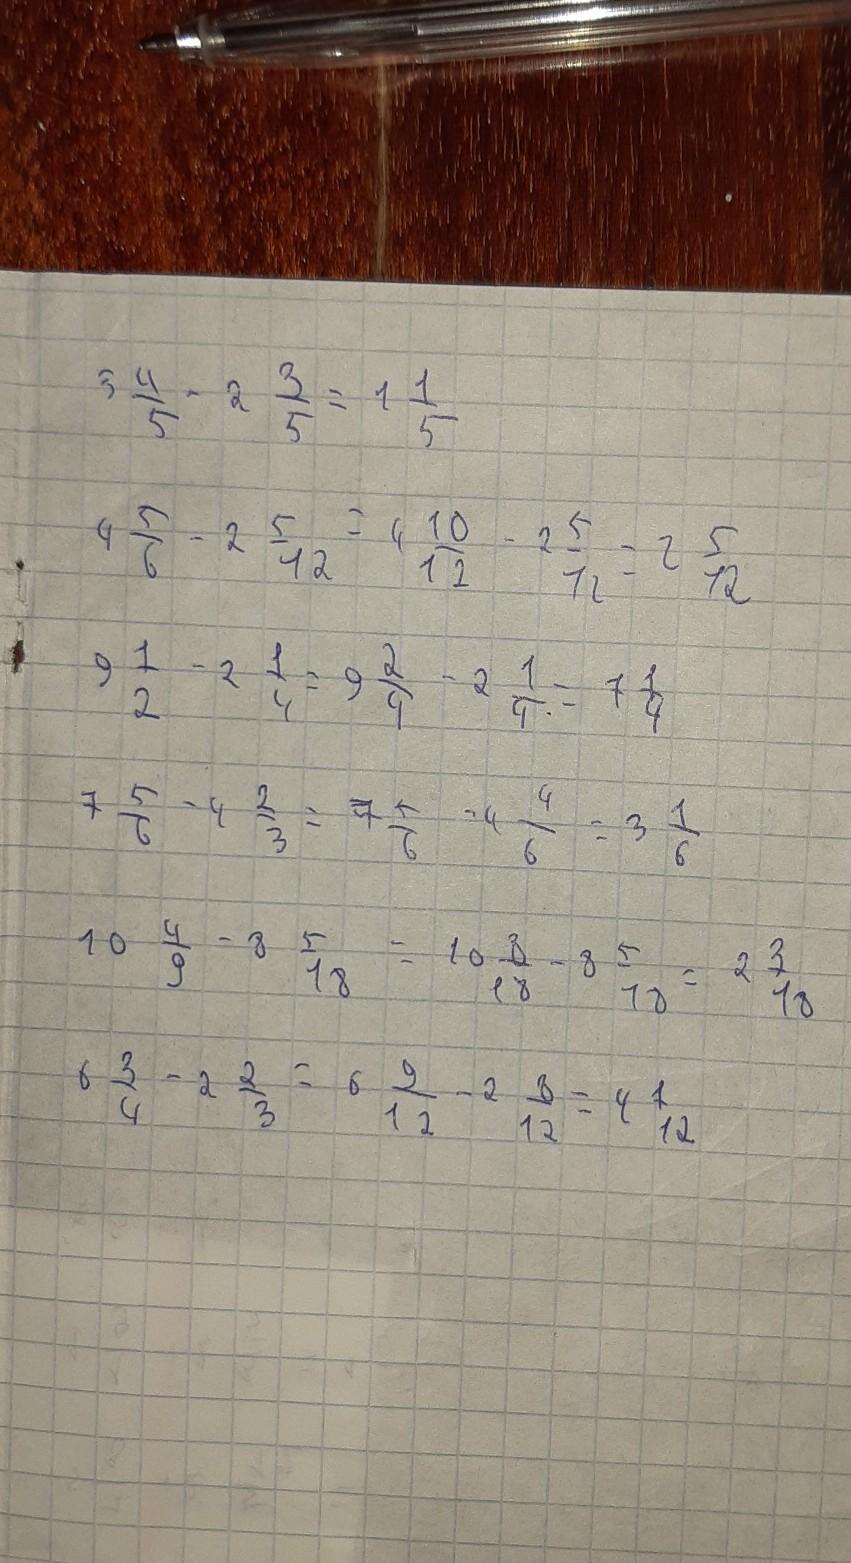 3 4/5 - 2 3/5 = 1 1/5
4 5/6 - 2 5/12 = 4 10/12 - 2 5/12 = 2 5/12
9 1/2 - 2 1/4 = 9 2/4 - 2 1/4 = 7 1/4
7 5/6 - 4 2/3 = 7 5/6 - 4 4/6 = 3 1/6
10 4/9 - 8 5/18 = 10 8/18 - 8 5/18 = 2 3/18
6 3/4 - 2 2/3 = 6 9/12 - 2 8/12 = 4 1/12